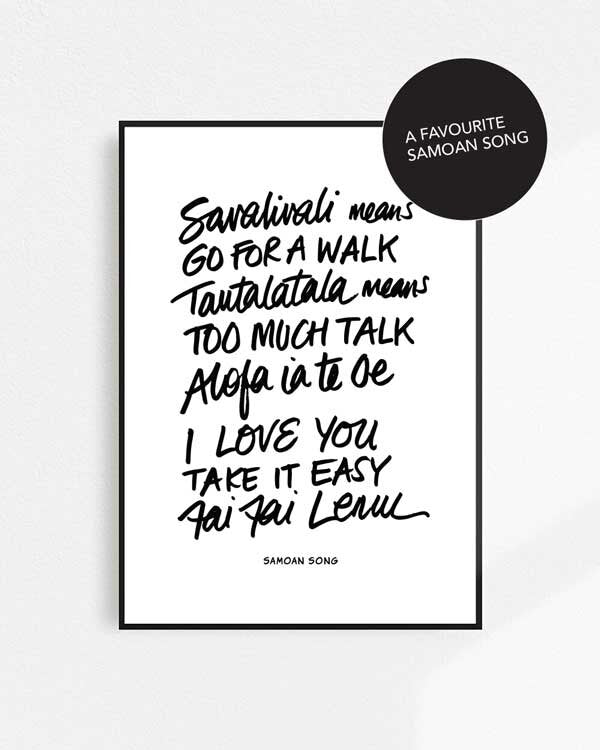 A FAVOURITE
SAMOAN SONG
Savalivali means
GO FOR A WALK
Tautalatala means
TOO MUCH TALK
Alofa ia te Oe
I LOVE YOU
TAKE IT EASY
Fai Fai Lemu
SAMOAN SONG